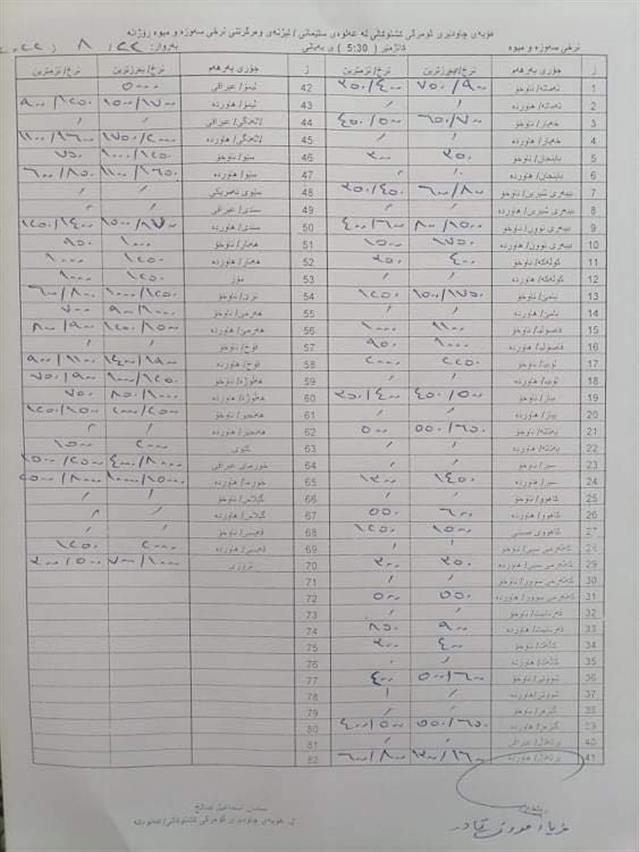 هۆبەی چاودێری گومرگی کشتوکاڵی لە عەلوەی سلێمانی / لیژنەی وەرگرتنی نرخی سەوزە و میوە ڕۆژانە
نرخی سەوزە و میوە کاتژمێر ( 5:30 ) ی بەیانی بەروار: ٢٢ / ٨ / ٢٠٢٢
ژ جۆری بەرهەم نرخ/بەرزترین نرخ/نزمترین ژ جۆری بەرهەم نرخ/بەرزترین نرخ/نزمترین
1 تەماتە/ ناوخۆ ٧٥٠/٩٠٠ ٣٥٠/٤٠٠ 42 لیمۆ/ عیراقی
2 تەماتە/ هاوردە 43 لیمۆ/ هاوردە ١٥٠٠/١٧٠٠ ٩٠٠/١٢٥٠
3 خەیار/ ناوخۆ ٦٥٠/٧٠٠ ٤٥٠/٥٠٠ 44 لالەنگی/ عیراقی
4 خەیار/ هاوردە 45 لالەنگی/ هاوردە ١٧٥٠/٢٠٠٠ ١١٠٠/١٦٠٠
5 باینجان/ ناوخۆ ٣٥٠ ٣٠٠ 46 سێو/ ناوخۆ ١٠٠٠/١٢٥٠ ٧٥٠
6 باینجان/ هاوردە 47 سێو/ هاوردە ١١٠٠/١٦٥٠ ٦٠٠/٨٥٠
7 بیبەری شیرین/ ناوخۆ ٦٠٠/٨٠٠ ٣٥٠/٤٥٠ 48
8 بیبەری شیرین/ هاوردە 49 سندی/ عیراقی
9 بیبەری توون/ ناوخۆ ٨٠٠/١٥٠٠ ٤٠٠/٦٠٠ 50 سندی/ هاوردە ١٥٠٠/١٧٠٠ ١٢٥٠/١٤٠٠
10 بیبەری توون/ هاوردە ١٧٥٠ ١٥٠٠ 51 هەنار/ ناوخۆ ١٠٠٠ ٩٥٠
11 کولەکە/ ناوخۆ ٤٠٠ ٣٥٠ 52 هەنار/ هاوردە ١٢٥٠ ١٠٠٠
12 کولەکە/ هاوردە 53 مۆز ١٢٥٠ ١٠٠٠
13 بامێ/ ناوخۆ ١٥٠٠/١٧٥٠ ١٢٥٠ 54 ترێ/ ناوخۆ ١٠٠٠/١٢٥٠ ٦٠٠/٨٠٠
14 بامێ/ هاوردە 55 هەرمێ/ ناوخۆ ٩٠٠/١٠٠٠ ٧٠٠
15 فاسۆلیا/ ناوخۆ ١١٠٠ ١٠٠٠ 56 هەرمێ/ هاوردە ١٢٥٠/١٥٠٠ ٨٠٠/٩٠٠
16 فاسۆلیا/ هاوردە ١٠٠٠ ٩٥٠ 57 قۆخ/ ناوخۆ
17 لۆبیا/ ناوخۆ ٢٢٥٠ ٢٠٠٠ 58 قۆخ/ هاوردە ١٤٠٠/١٩٠٠ ٩٠٠/١١٠٠
18 لۆبیا/ هاوردە 59 هەڵوژە/ ناوخۆ ١٠٠٠/١٢٥٠ ٧٥٠/٩٠٠
19 پیاز/ ناوخۆ ٤٥٠/٥٠٠ ٣٥٠/٤٠٠ 60 هەڵوژە/ هاوردە ٨٥٠/١٠٠٠ ٧٥٠
20 پیاز/ هاوردە 61 هەنجیر/ ناوخۆ ٢٠٠٠/٢٥٠٠ ١٢٥٠/١٥٠٠
21 پەتاتە/ ناوخۆ ٥٥٠/٦٥٠ ٥٠٠ 62 هەنجیر/ هاوردە
22 پەتاتە/ هاوردە 63 کیوی ٢٠٠٠ ١٥٠٠
23 سیر/ ناوخۆ 64 خورمای عیراقی ٤٠٠٠/٨٠٠٠ ١٥٠٠/٢٥٠٠
24 سیر/ هاوردە ١٤٥٠ ١٣٠٠ 65 خورما/ هاوردە
25 کاهوو/ ناوخۆ 66 گێلاس/ ناوخۆ
26 کاهوو/ هاوردە ٦٠٠ ٥٥٠ 67 گێلاس/ هاوردە
27 کاهووی صینی ١٥٠٠ ١٢٥٠ 68 قەیسی/ ناوخۆ
28 کەلەرمی سپی/ ناوخۆ 69 قەیسی/ هاوردە ٢٠٠٠ ١٢٥٠
29 کەلەرمی سپی/ هاوردە ٣٥٠ ٣٠٠ 70 تروزی ٧٠٠/١٠٠٠ ٣٠٠/٥٠٠
30 کەلەرمی سوور/ ناوخۆ 71
31 کەلەرمی سوور/ هاوردە ٥٥٠ ٥٠٠ 72
32 قەرنابیت/ ناوخۆ 73
33 قەرنابیت/ هاوردە ٩٠٠ ٨٥٠ 74
34 کاڵەک/ ناوخۆ ٤٠٠ ٣٠٠ 75
35 کاڵەک/ هاوردە 76
36 شووتی/ ناوخۆ ٥٠٠/٦٠٠ ٤٠٠ 77
37 شووتی/ هاوردە 78
38 گێزەر/ ناوخۆ 79
39 گێزەر/ هاوردە ٥٥٠/٦٥٠ ٤٠٠/٥٠٠ 80
40 پرتەقاڵ/ عیراقی 81
41 پرتەقاڵ/ هاوردە ١٣٠٠/١٦٠٠ ٦٠٠/٨٠٠ 82
سامان اسماعیل صالح